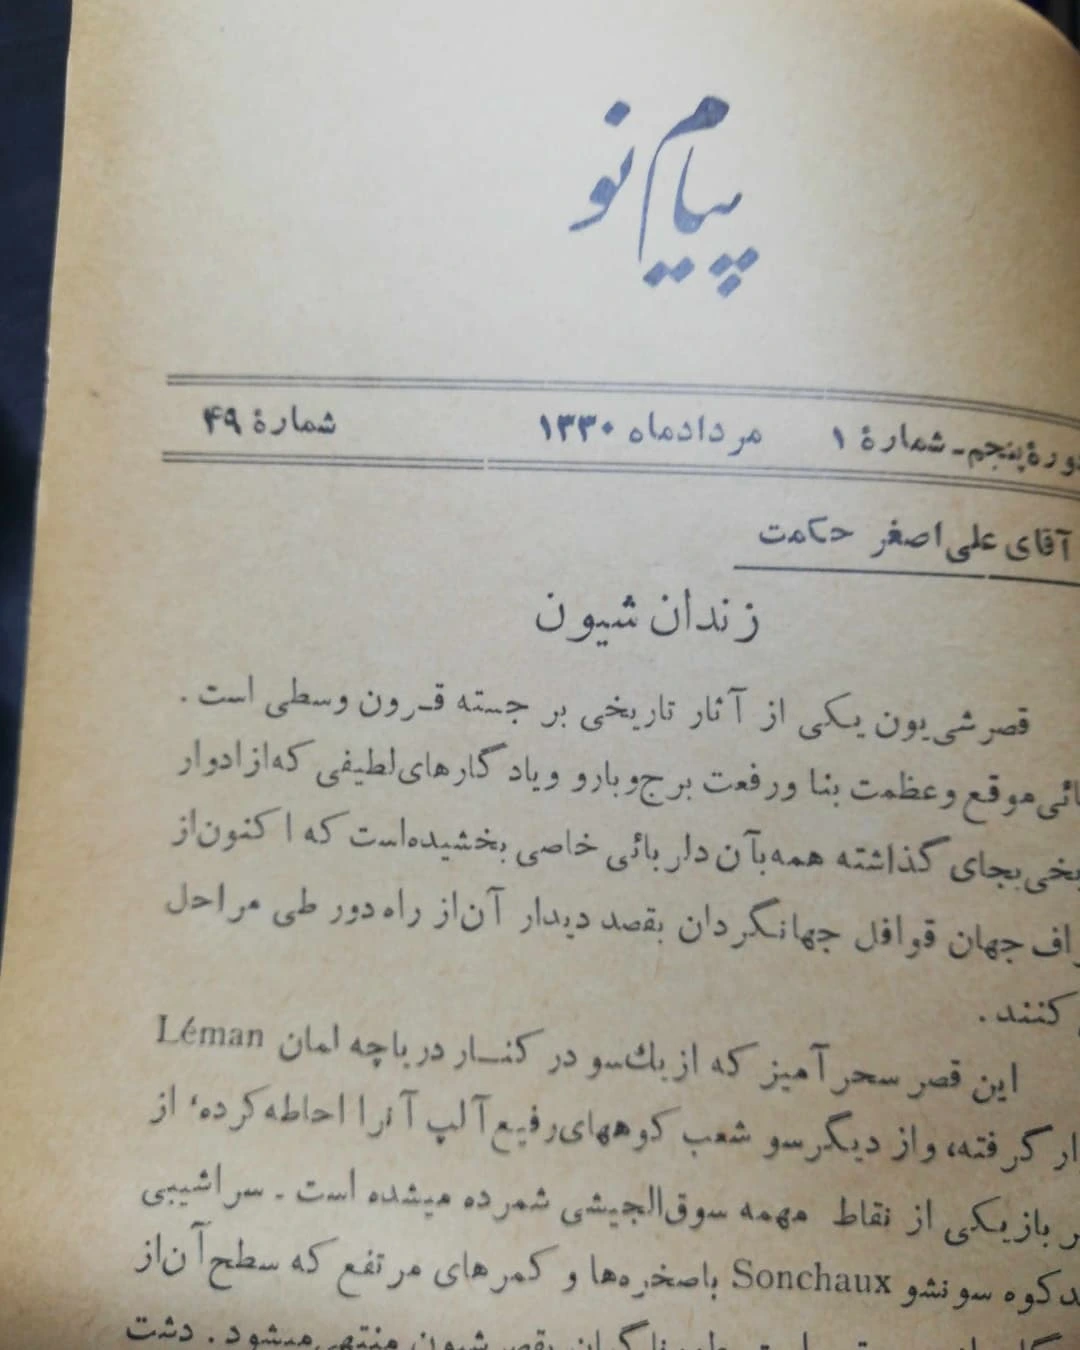 پیام نو
دورهٔ پنجم - شمارهٔ ۱ مرداد ماه ۱۳۳۰ شمارهٔ ۴۹
آقای علی اصغر حکمت
زندان شیون
قصر شی‌یون یکی از آثار تاریخی بر جسته قرون وسطی است .
موقع و عظمت بنا و رفعت برج و بارو و یادگارهای لطیفی که از ادوار
بجای گذاشته همه بآن دلربائی خاصی بخشیده است که اکنون از
جهان قوافل جهانگردان بقصد دیدار آن از راه دور طی مراحل
کنند .
این قصر سحر آمیز که از یك سو در کنار دریاچه لمان Léman
گرفته، و از دیگر سو شعب کوههای رفیع آلپ آنرا احاطه کرده، از
باز یکی از نقاط مهمه سوق الجیشی شمرده میشده است - سراشیبی
کوه سونشو Sonchaux باصخره‌ها و کمرهای مرتفع که سطح آن از
بقصر شیون منتهی میشود . دشت